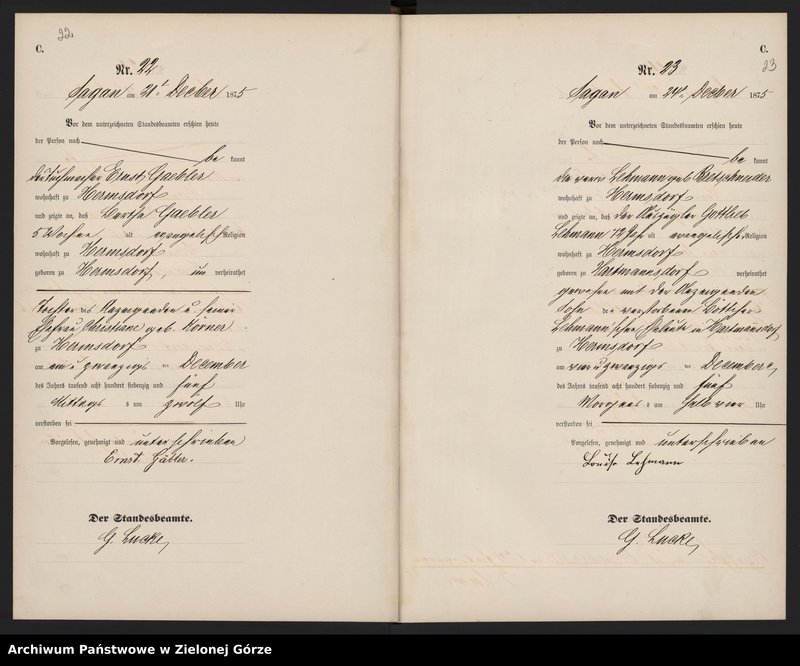 22
C.
Nr. 22
Sagan am 21t Decber 1875
Vor dem unterzeichneten Standesbeamten erschien heute
der Person nach
be kannt
der Tuchmacher Ernst Gaebler
wohnhaft zu Hermsdorf
und zeigte an, daß Bertha Gaebler
5 Wochen, alt evangelischer Religion
wohnhaft zu Hermsdorf
geboren zu Hermsdorf, un verheirathet
Tochter des Anzeigenden u. seiner
Ehefrau Christiane geb. Körner
zu Hermsdorf
am ein u zwanzigs ten December
des Jahrs tausend acht hundert siebenzig und fünf
Mittags s um zwölf Uhr
verstorben sei
Vorgelesen, genehmigt und unterschrieben
Ernst Gäbler.
Der Standesbeamte.
G. Lucke
C.
23
Nr. 23
Sagan am 24t Decber 1875
Vor dem unterzeichneten Standesbeamten erschien heute
der Person nach
be kannt
die verw Lehmann geb Bretschneider
wohnhaft zu Hermsdorf
und zeigte an, daß der Auszügler Gottlieb
Lehmann 72 Jahr alt evangelischer Religion
wohnhaft zu Hermsdorf
geboren zu Hartmannsdorf verheirathet
gewesen mit der Anzeigenden
Sohn der verstorbenen
Lehmann'schen Eheleute in Hartmansdorf
zu Hermsdorf
am vier u zwanzigs ten December
des Jahrs tausend acht hundert siebenzig und fünf
Morgens s um halb vier Uhr
verstorben sei
Vorgelesen, genehmigt und unterschrieben
Louise Lehmann
Der Standesbeamte.
G. Lucke
Archiwum Państwowe w Zielonej Górze